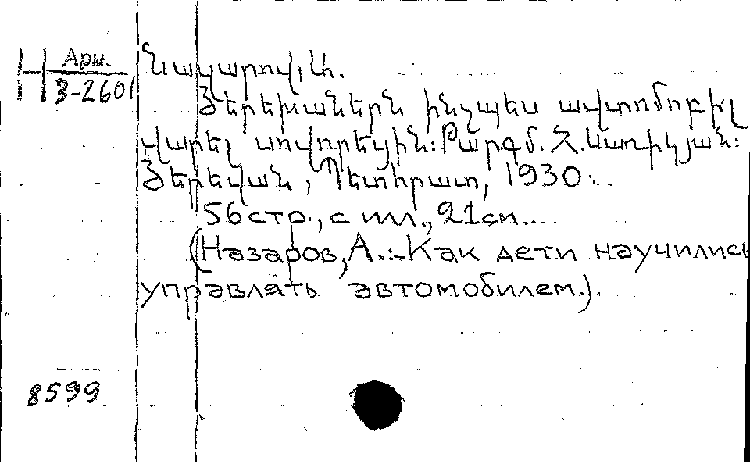 Н Арм.
3-2601
Նազարով, Ա.
Յերեխաներն ինչպես ավտոմոբիլ
վարել սովորեցին: Թարգմ. Հ. Սաղիկյան:
Յերեվան, Պետհրատ, 1930.
56 стр., с илл., 21 см.
(Назаров, А. :- Как дети научились
управлять автомобилем.).
8599